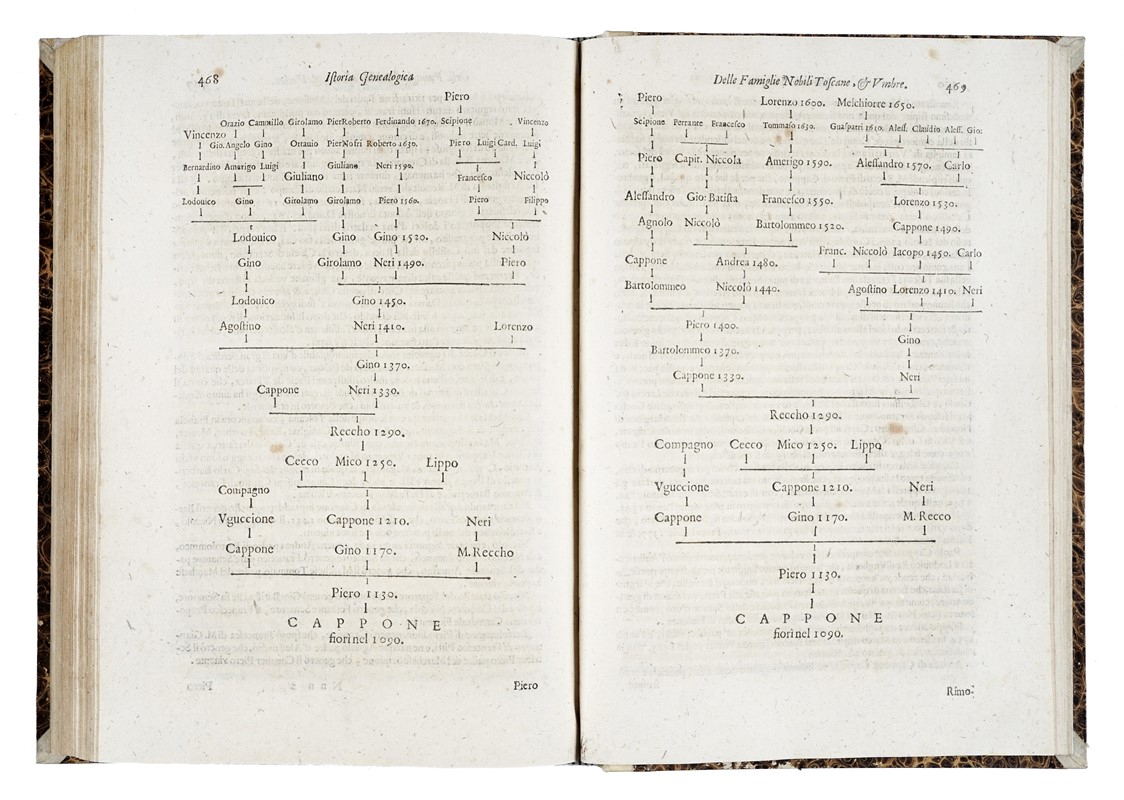 468 Iſtoria Genealogica
Piero
Orazio Cammillo Girolamo PierRoberto Ferdinando 1670. Scipione Vincenzo
Vincenzo
Gio. Angelo Gino Ottauio PierNofri Roberto 1630. Piero Luigi Card. Luigi
Bernardino Amerigo Luigi Giuliano Neri 1590.
Giuliano Franceſco Niccolò
Lodouico Gino Girolamo Girolamo Piero 1560. Piero Filippo
Lodouico Gino Gino 1520. Niccolò
Gino Girolamo Neri 1490. Piero
Lodouico Gino 1450.
Agoſtino Neri 1410. Lorenzo
Gino 1370.
Cappone Neri 1330.
Reccho 1290.
Cecco Mico 1250. Lippo
Compagno
Vguccione Cappone 1210. Neri
Cappone Gino 1170. M. Reccho
Piero 1130.
CAPPONE
fiorì nel 1090.
Piero
Delle Famiglie Nobili Toſcane, & Vmbre. 469
Piero Lorenzo 1600. Melchiorre 1650.
Scipione Ferrante Franceſco Tommaſo 1630. Guaſparri 1610. Aleſſ. Claudio Aleſſ. Gio:
Piero Capit. Niccola Amerigo 1590. Aleſſandro 1570. Carlo
Aleſſandro Gio: Batiſta Franceſco 1550. Lorenzo 1530.
Agnolo Niccolò Bartolommeo 1520. Cappone 1490.
Cappone Andrea 1480. Franc. Niccolò Iacopo 1450. Carlo
Bartolommeo Niccolò 1440. Agoſtino Lorenzo 1410. Neri
Piero 1400.
Bartolommeo 1370. Gino
Cappone 1330. Neri
Reccho 1290.
Compagno Cecco Mico 1250. Lippo
Vguccione Cappone 1210. Neri
Cappone Gino 1170. M. Recco
Piero 1130.
CAPPONE
fiorì nel 1090.
Rimo-